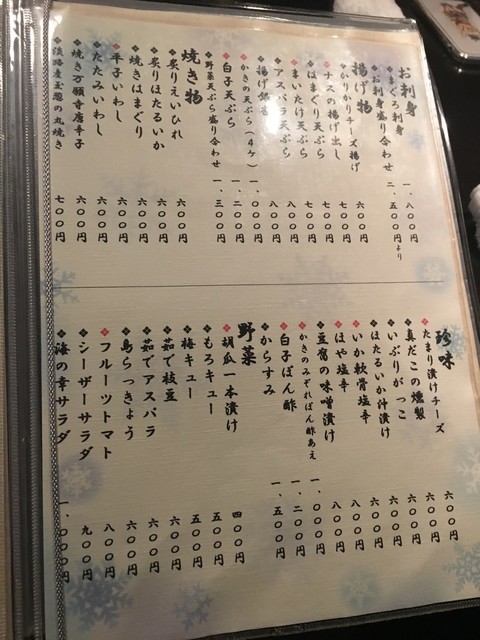 お刺身
まぐろ刺身 一、八〇〇円
お刺身盛り合わせ 二、五〇〇円より
揚げ物
かりかりチーズ揚げ 六〇〇円
ナスの揚げ出し 七〇〇円
はまぐり天ぷら 七〇〇円
まいたけ天ぷら 七〇〇円
アスパラ天ぷら 八〇〇円
揚げ銀杏 八〇〇円
かきの天ぷら(4ケ) 一、〇〇〇円
白子天ぷら 一、二〇〇円
野菜天ぷら盛り合わせ 一、三〇〇円
焼き物
炙りえいひれ 六〇〇円
炙りほたるいか 六〇〇円
焼きはまぐり 六〇〇円
平子いわし 六〇〇円
たたみいわし 六〇〇円
焼き万願寺唐辛子 七〇〇円
淡路産玉葱の丸焼き 七〇〇円
珍味
たまり漬けチーズ 六〇〇円
真だこの燻製 六〇〇円
いぶりがっこ 六〇〇円
ほたるいか汁漬け 六〇〇円
いか軟骨塩辛 六〇〇円
ほや塩辛 八〇〇円
豆腐の味噌漬け 八〇〇円
かきのみぞれぽん酢あえ 一、〇〇〇円
白子ぽん酢 一、二〇〇円
からすみ 一、五〇〇円
野菜
胡瓜一本漬け 四〇〇円
もろキュー 五〇〇円
梅キュー 五〇〇円
茹で枝豆 六〇〇円
茹でアスパラ 六〇〇円
島らっきょう 六〇〇円
フルーツトマト 八〇〇円
シーザーサラダ 九〇〇円
海の幸サラダ 一、〇〇〇円